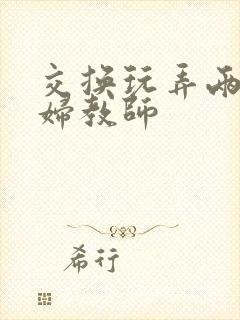 交换玩弄两
婦教師
希行